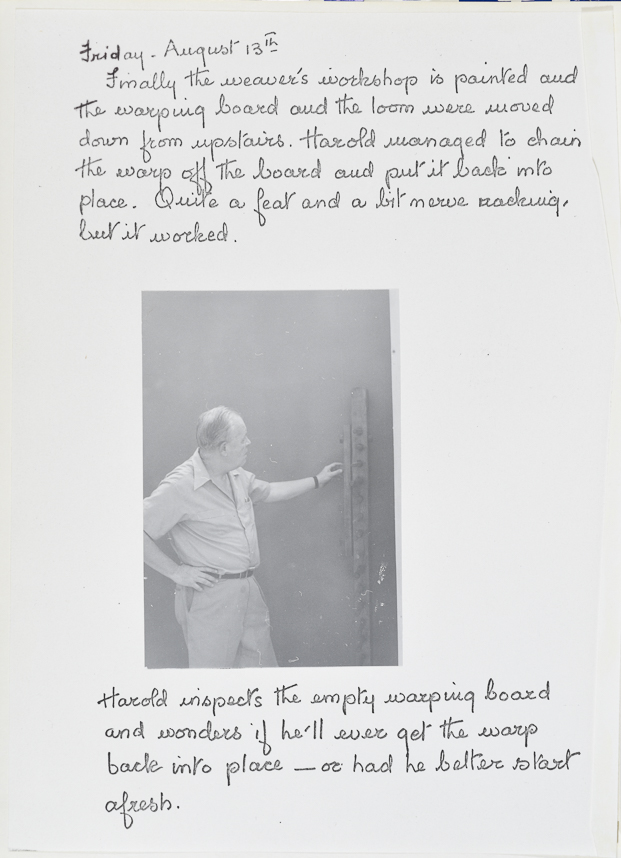 Friday - August 13th
Finally the weaver's workshop is painted and
the warping board and the loom were moved
down from upstairs. Harold managed to chain
the warp off the board and put it back into
place. Quite a feat and a bit nerve racking,
but it worked.
Harold inspects the empty warping board
and wonders if he'll ever get the warp
back into place — or had he better start
afresh.